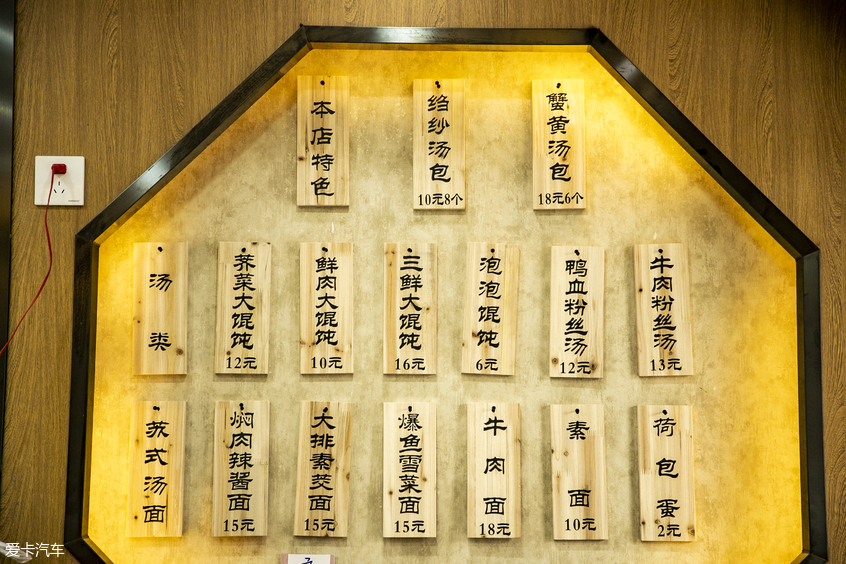 本店特色
绉纱汤包
10元8个
蟹黄汤包
18元6个
汤类
荠菜大馄饨
12元
鲜肉大馄饨
10元
三鲜大馄饨
16元
泡泡馄饨
6元
鸭血粉丝汤
12元
牛肉粉丝汤
13元
苏式汤面
焖肉辣酱面
15元
大排素茭面
15元
爆鱼雪菜面
15元
牛肉面
18元
素面
10元
荷包蛋
2元
爱卡汽车